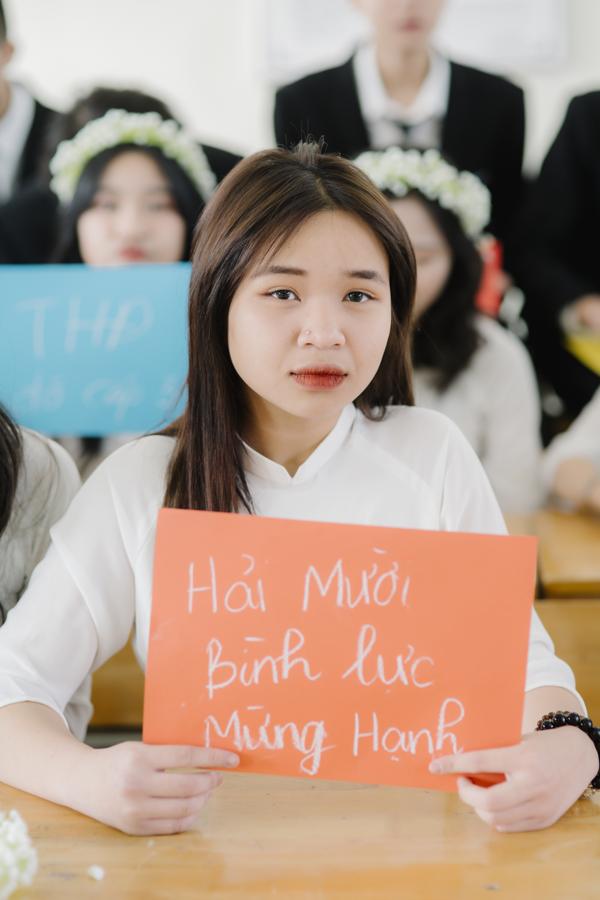 THP
Hải Mười
Bình lực
Mừng Hạnh